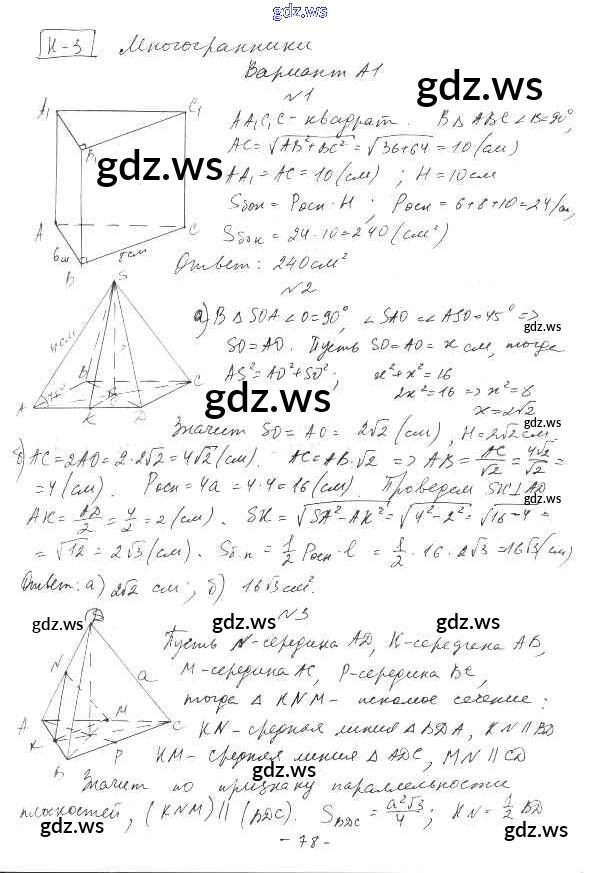 gdz.ws
К-3 Многогранники
Вариант А1
N1
gdz.ws
AA₁C₁C - квадрат. В Δ ABC ∠B=90°,
AC = √AB²+BC² = √36+64 = 10 (см)
gdz.ws
AA₁ = AC = 10 (см) ; H = 10см
Sбок = Pосн · H ; Pосн = 6+8+10 = 24 (см)
Sбок = 24 · 10 = 240 (см²)
Ответ: 240 см²
A₁ C₁ B₁ A C B 6см 8см
N2
S 4см 45° A B C K D
а) В Δ SOA ∠O=90°, ∠SAO = ∠ASO = 45° =>
gdz.ws
SO = AO. Пусть SO = AO = x см, тогда
AS² = AO² + SO² ; x² + x² = 16
gdz.ws
gdz.ws
2x² = 16 => x² = 8
x = 2√2
Значит SO = AO = 2√2 (см), H = 2√2 см
б) AC = 2AO = 2·2√2 = 4√2 (см). AC = AB·√2 => AB = AC/√2 = 4√2/√2 =
gdz.ws
= 4 (см). Pосн = 4a = 4·4 = 16 (см). Проведем SK⊥AD
AK = AD/2 = 4/2 = 2 (см). SK = √SA²-AK² = √4²-2² = √16-4 =
gdz.ws
= √12 = 2√3 (см). Sб.п = 1/2 Pосн · l = 1/2 · 16 · 2√3 = 16√3 (см)
Ответ: а) 2√2 см; б) 16√3 см².
gdz.ws
gdz.ws
gdz.ws
N3
D N a A M C K B P
Пусть N-середина AD, K-середина AB,
M-середина AC, P-середина BC,
gdz.ws
тогда Δ KNM - искомое сечение:
gdz.ws
KN - средняя линия Δ BDA, KN || BD
KM - средняя линия Δ ADC, MN || CD
gdz.ws
Значит по признаку параллельности
плоскостей, (KNM) || (BDC). S BDC = a²√3/4 ; KN = 1/2 BD
gdz.ws
gdz.ws
- 78 -
gdz.ws